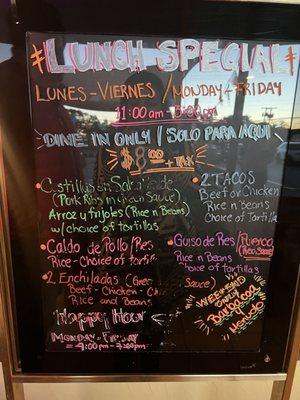 #LUNCH SPECIAL#
LUNES-VIERNES / MONDAY-FRIDAY
11:00 am - 3:00 pm
DINE IN ONLY / SOLO PARA AQUI
$8.00 + TAX
Costillas en Salsa
(Pork Ribs in Sauce)
Arroz y frijoles (Rice n Beans)
w/choice of tortillas
Caldo de Pollo/Res
Rice-Choice of tortillas
2 Enchiladas (Green
Beef-Chicken-Ch
Rice and Beans
2 TACOS
Beef or Chicken
Rice n Beans
Choice of Tortilla
Guiso de Res/Puerco
Rice n Beans
Choice of Tortillas
Sauce)
WEEKEND
ONLY
Barbacoa
Menudo
Happy Hour
MONDAY-
4:00pm -